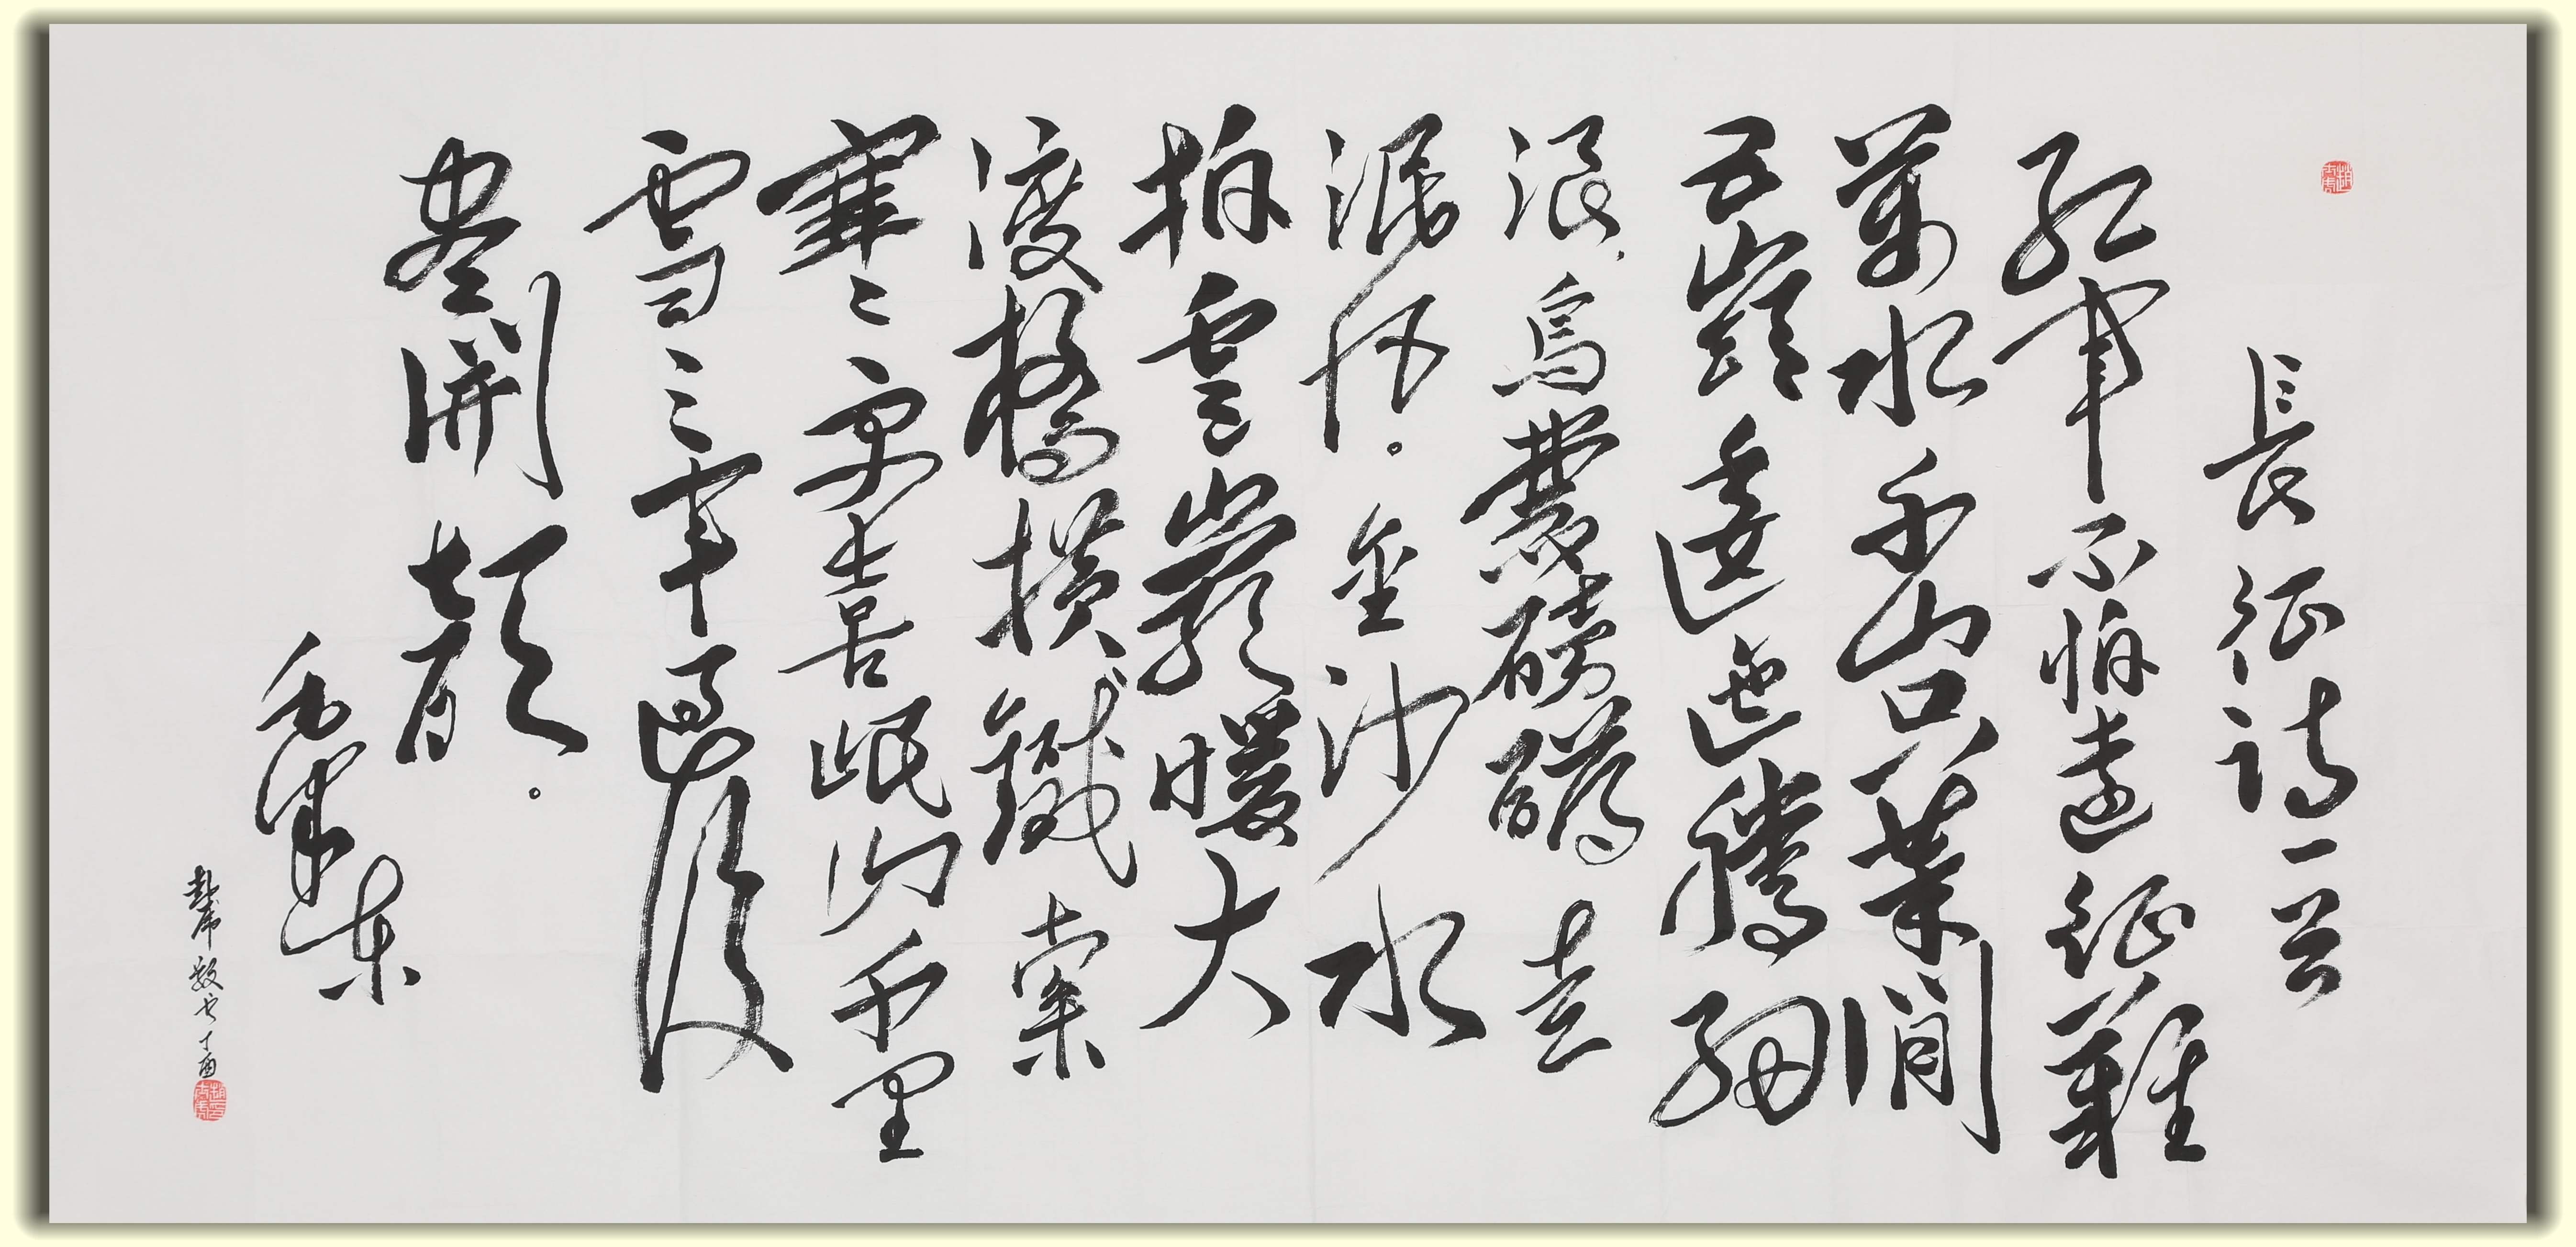 長征詩一首
紅軍不怕遠征難
萬水千山只等閒
五嶺逶迤騰細
浪,烏蒙磅礴走
泥丸。金沙水
拍雲巖暖大
渡橋橫鐵索
寒更喜岷山千里
雪三軍過後
盡開顏。
毛澤東
丁酉